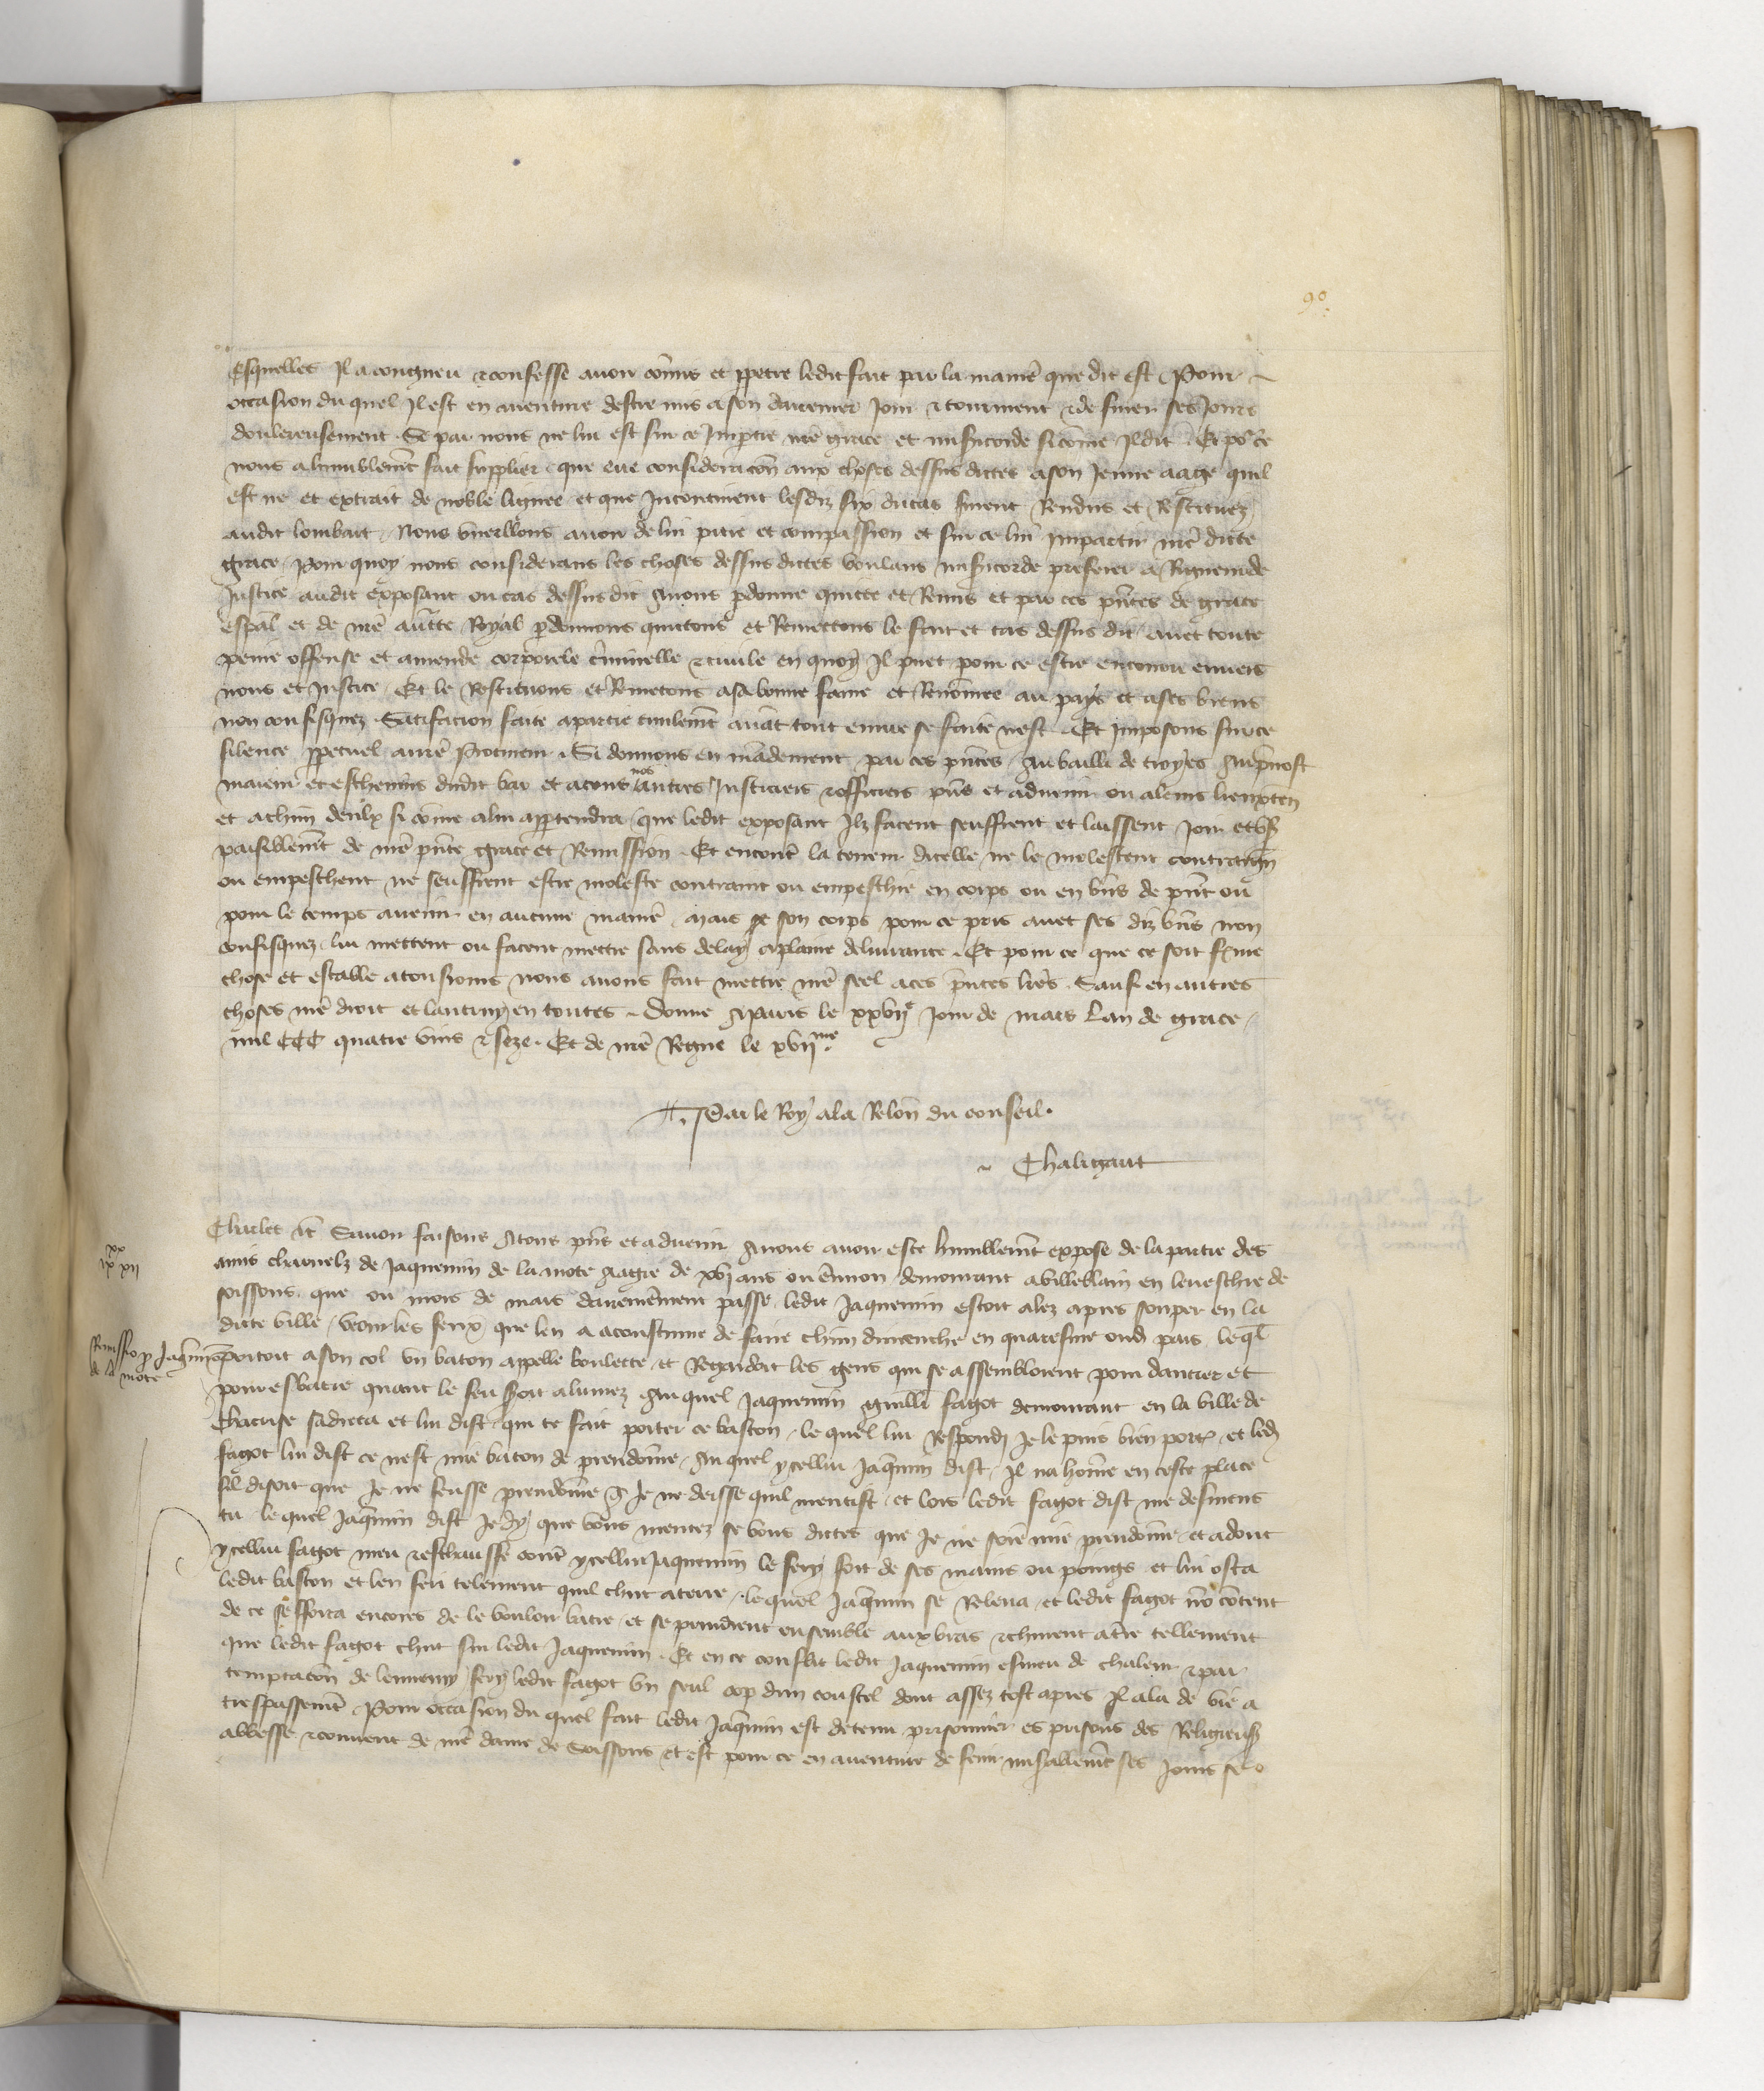 90
Esquelles Il a congneu et confesse avoir com̃is et ꝑpetre ledit fait par la manie᷑ que dit est Pour
occasion du quel Il est en aventure destre mis a son darrenier Jour et tourment et de finer ses Jours
doulereusement Se par nous ne lui est sur ce Impartie nr̃e grace et misericorde si com̃e Il dit Et po᷑ ce
nous a humblem̃t fait supplier que eue consideracõn aux choses dessus dictes a son Jeune aage quil
est ne et extrait de noble lignee et que Incontinent lesdiz six ducas furent Renduz et Restituez
audit lombart Nous vueillons avoir de lui pitie et compassion et sur ce lui Impartir nr̃e dicte
grace Pour quoy nous considerans les choses dessus dictes voulans misericorde preferer a Rigueur de
Justice audit exposant ou cas dessus dit Avons ꝑdonne quicte et Remis et par ces pñtes de grace
esp̃al et de nr̃e auct̃e Royal ꝑdonnons quittons et Remettons le fait et cas dessus dit avec toute
peine offense et amende corporele criminelle et civile en quoy Il puet pour ce estre encouru envers
nous et Justice Et le Restituons et Remetons a sa bonne fame et Renom̃ee au pays et a ses biens
non confisquez Satisfacion faite a partie civilem̃t avãt tout euvre se faite nest Et Imposons sur ce
silence ꝑpetuel a nr̃e Procureur Si donnons en mãdement par ces pñtes Au bailli de troyes Au p̃vost
maieur et eschevins dudit bar et a tous nos autres Justiciers et officiers pñs et advenir ou a leurs lieuxten̄
et a chũn deulx si com̃e a lui appartendra que ledit exposant Ilz facent seuffrent et laissent Joir et us᷑
paisiblem̃t de nr̃e pñte grace et Remission Et encont᷑ la teneur dicelle ne le molestent contraign̄
ou empeschent ne seuffrent estre moleste contraint ou empeschie en corps ou en biẽs de pñt ou
pour le temps avenir en aucune manie᷑ Mais se son corps pour ce pris avec ses diz biẽs non
confisquez lui mettent ou facent mettre sans delay a plaine delivrance Et pour ce que ce soit ferme
chose et estable a tousiours nous avons fait mettre nr̃e seel a ces p̃ntes lr̃es Sauf en autres
choses nr̃e droit et lautruy en toutes Donne A Paris le xxvij͏ᵉ Jour de mars Lan de grace
mil CCC quatre vins et seze Et de nr̃e Regne le xvii me
Par le Roy a la Relon̄ du conseil
Chaligaut
Charles et̃c Savoir faisons A tous pñs et advenir A nous avoir este humblem̃t expose de la partie des
amis charnelz de Jaquemin de la mote aagie de xvj ans ou env̄iron demourant a villeblain en leveschie de
soissons que ou mois de mars darrenẽment passe ledit Jaquemin estoit alez apres souper en la
dicte ville veoir les feux que len a acoustume de faire chũn dimenche en quaresme oud pais leq̃l
portoit a son col un baton appelle boulette et Regardoit les gens qui se assembloient pour dancier et
pour esbatre quant le feu seroit alumez Auquel Jaquemin guille fagot demourant en la ville de
Chacrise sadreca et lui dist qui te fait porter ce baston le quel lui Respondi Je le puis bien port᷑ et led
fagot lui dist ce nest mie baton de preudom̃e Auquel ycellui Jaq̃min dist Il na hom̃e en ceste place
sil disoit que Je ne feusse preudom̃e q̃ Je ne deisse quil mentist et lors ledit fagot dist me desmens
tu le quel Jaq̃min dist Je dy que vous mentez se vous dictes que Je ne soie mie preudom̃e et adont
ycellui fagot meu et eschauffe cont᷑ ycellui Jaquemin le fery fort de ses mains ou poings et lui osta
ledit baston et len feri telement quil chut a terre le quel Jaq̃min se Releva et ledit fagot nõ cõtent
de ce sefforca encores de le vouloir batre et se prindrent ensemble aux bras et churent a t᷑re tellement
que ledit fagot chut sur ledit Jaquemin Et en ce conflit ledit Jaquemin esmeu de chaleur et par
temptacõn de lennemy fery ledit fagot un seul cop dun coustel dont assez tost apres Il ala de vie a
trespassem̃t Pour occasion du quel fait ledit Jaq̃min est detenu prisonnier es prisons des Religieus᷑
abbesse et couvent de nr̃e dame de Soissons et est pour ce en aventure de fenir mis᷑ablem̃t ses Jours se
xx
ix xii
Remissio ꝓ Jaq̃mino
de la mote